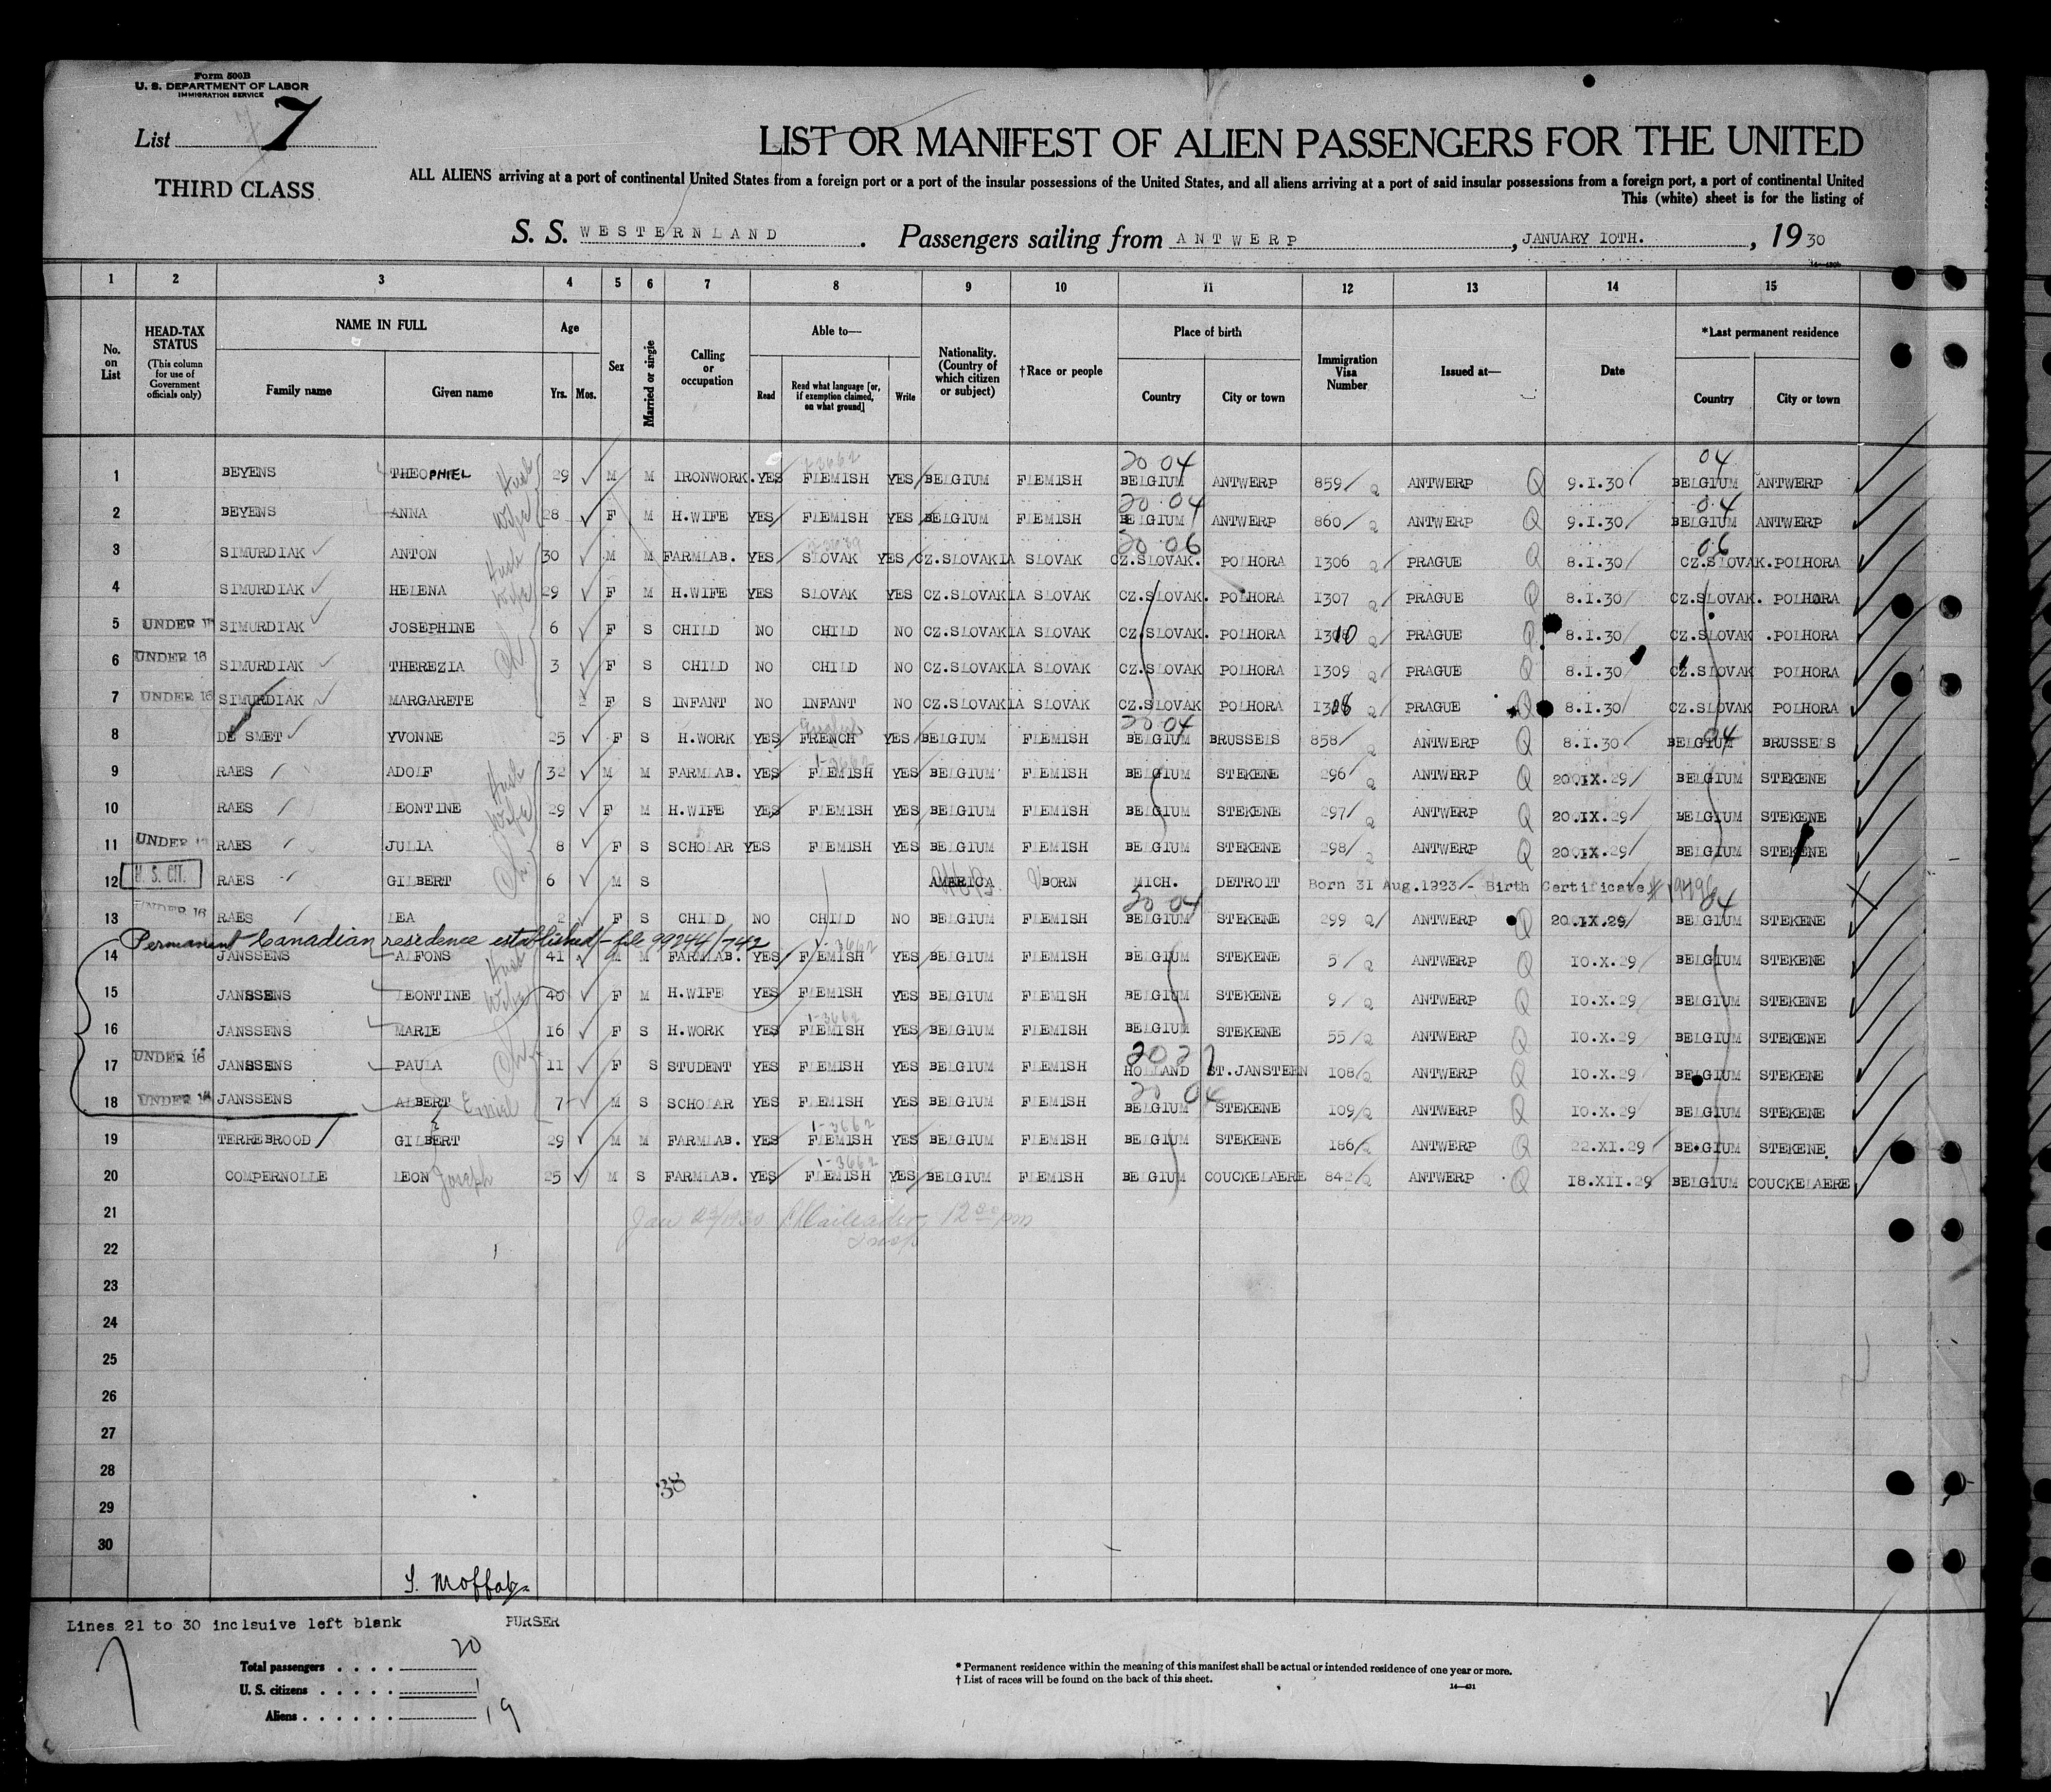 Form 500B
U. S. DEPARTMENT OF LABOR
IMMIGRATION SERVICE
List 7
THIRD CLASS
LIST OR MANIFEST OF ALIEN PASSENGERS FOR THE UNITED
ALL ALIENS arriving at a port of continental United States from a foreign port or a port of the insular possessions of the United States, and all aliens arriving at a port of said insular possessions from a foreign port, a port of continental United
This (white) sheet is for the listing of
S. S. WESTERNLAND. Passengers sailing from ANTWERP, JANUARY 10TH., 1930
1 2 3 4 5 6 7 8 9 10 11 12 13 14 15
No. on List
HEAD-TAX STATUS (This column for use of Government officials only)
NAME IN FULL Family name Given name
Age Yrs. Mos.
Sex
Married or single
Calling or occupation
Able to— Read Read what language [or, if exemption claimed, on what ground] Write
Nationality. (Country of which citizen or subject)
†Race or people
Place of birth Country City or town
Immigration Visa Number
Issued at—
Date
*Last permanent residence Country City or town
1 BEYENS THEOPHIEL Husb 29 M M IRONWORK. YES FLEMISH YES BELGIUM FLEMISH 20 04 BELGIUM ANTWERP 859 Q ANTWERP Q 9.I.30 04 BELGIUM ANTWERP
2 BEYENS ANNA Wife 28 F M H.WIFE YES FLEMISH YES BELGIUM FLEMISH 20 04 BELGIUM ANTWERP 860 Q ANTWERP Q 9.I.30 04 BELGIUM ANTWERP
3 SIMURDIAK ANTON Husb 30 M M FARMLAB. YES SLOVAK YES CZ.SLOVAKIA SLOVAK 20 06 CZ.SLOVAK. POLHORA 1306 Q PRAGUE Q 8.I.30 06 CZ.SLOVAK. POLHORA
4 SIMURDIAK HELENA Wife 29 F M H.WIFE YES SLOVAK YES CZ.SLOVAKIA SLOVAK CZ.SLOVAK. POLHORA 1307 Q PRAGUE Q 8.I.30 CZ.SLOVAK. POLHORA
5 UNDER 16 SIMURDIAK JOSEPHINE 6 F S CHILD NO CHILD NO CZ.SLOVAKIA SLOVAK CZ.SLOVAK. POLHORA 1310 Q PRAGUE Q 8.I.30 CZ.SLOVAK .POLHORA
6 UNDER 16 SIMURDIAK THEREZIA Ch 3 F S CHILD NO CHILD NO CZ.SLOVAKIA SLOVAK CZ.SLOVAK POLHORA 1309 Q PRAGUE Q 8.I.30 CZ.SLOVAK POLHORA
7 UNDER 16 SIMURDIAK MARGARETE F S INFANT NO INFANT NO CZ.SLOVAKIA SLOVAK CZ.SLOVAK POLHORA 1308 Q PRAGUE Q 8.I.30 CZ.SLOVAK POLHORA
8 DE SMET YVONNE 25 F S H.WORK YES English FRENCH YES BELGIUM FLEMISH 20 04 BELGIUM BRUSSELS 858 Q ANTWERP Q 8.I.30 04 BELGIUM BRUSSELS
9 RAES ADOLF Husb 32 M M FARMLAB. YES 1-3662 FLEMISH YES BELGIUM FLEMISH BELGIUM STEKENE 296 Q ANTWERP Q 20.IX.29 BELGIUM STEKENE
10 RAES LEONTINE Wife 29 F M H.WIFE YES FLEMISH YES BELGIUM FLEMISH BELGIUM STEKENE 297 Q ANTWERP Q 20.IX.29 BELGIUM STEKENE
11 UNDER RAES JULIA 8 F S SCHOLAR YES FLEMISH YES BELGIUM FLEMISH BELGIUM STEKENE 298 Q ANTWERP Q 20.IX.29 BELGIUM STEKENE
12 U. S. CIT. RAES GILBERT Ch. 6 M S AMERICA BORN MICH. DETROIT Born 31 Aug.1923 - Birth Certificate
13 UNDER 16 RAES LEA 2 F S CHILD NO CHILD NO BELGIUM FLEMISH 20 04 BELGIUM STEKENE 299 Q ANTWERP Q 20.IX.29 04 BELGIUM STEKENE
Permanent Canadian residence established - file 99244/742
14 JANSSENS ALFONS Husb 41 M M FARMLAB. YES 1-3662 FLEMISH YES BELGIUM FLEMISH BELGIUM STEKENE 5 Q ANTWERP Q 10.X.29 BELGIUM STEKENE
15 JANSSENS LEONTINE Wife 40 F M H.WIFE YES FLEMISH YES BELGIUM FLEMISH BELGIUM STEKENE 9 Q ANTWERP Q 10.X.29 BELGIUM STEKENE
16 JANSSENS MARIE 16 F S H.WORK YES 1-3662 FLEMISH YES BELGIUM FLEMISH BELGIUM STEKENE 55 Q ANTWERP Q 10.X.29 BELGIUM STEKENE
17 UNDER 16 JANSSENS PAULA Ch. 11 F S STUDENT YES FLEMISH YES BELGIUM FLEMISH HOLLAND ST.JANSTEEN 108 Q ANTWERP Q 10.X.29 BELGIUM STEKENE
18 UNDER 16 JANSSENS ALBERT Emiel 7 M S SCHOLAR YES FLEMISH YES BELGIUM FLEMISH 20 04 BELGIUM STEKENE 109 Q ANTWERP Q 10.X.29 BELGIUM STEKENE
19 TERREBROOD GILBERT 29 M M FARMLAB. YES 1-3662 FLEMISH YES BELGIUM FLEMISH BELGIUM STEKENE 186 Q ANTWERP Q 22.XI.29 BELGIUM STEKENE.
20 COMPERNOLLE LEON Joseph 25 M S FARMLAB. YES 1-3662 FLEMISH YES BELGIUM FLEMISH BELGIUM COUCKELAERE 842 Q ANTWERP Q 18.XII.29 BELGIUM COUCKELAERE
21 Jan 1930 12 30 pm
22
23
24
25
26
27
28 38
29
30
Moffat
Lines 21 to 30 inclsuive left blank PURSER
Total passengers . . . . 20
U. S. citizens . . . . . 1
Aliens . . . . . . 19
* Permanent residence within the meaning of this manifest shall be actual or intended residence of one year or more.
† List of races will be found on the back of this sheet.
14—431